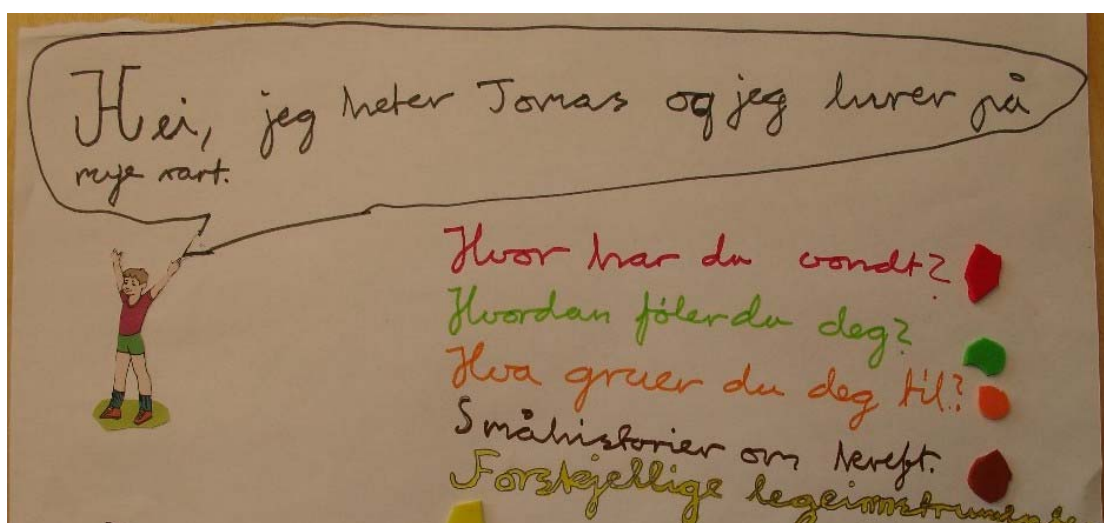 Hei, jeg heter Tomas og jeg lurer på
mye rart.
Hvor har du vondt?
Hvordan føler du deg?
Hva gruer du deg til?
Småhistorier om kreft.
Forskjellige